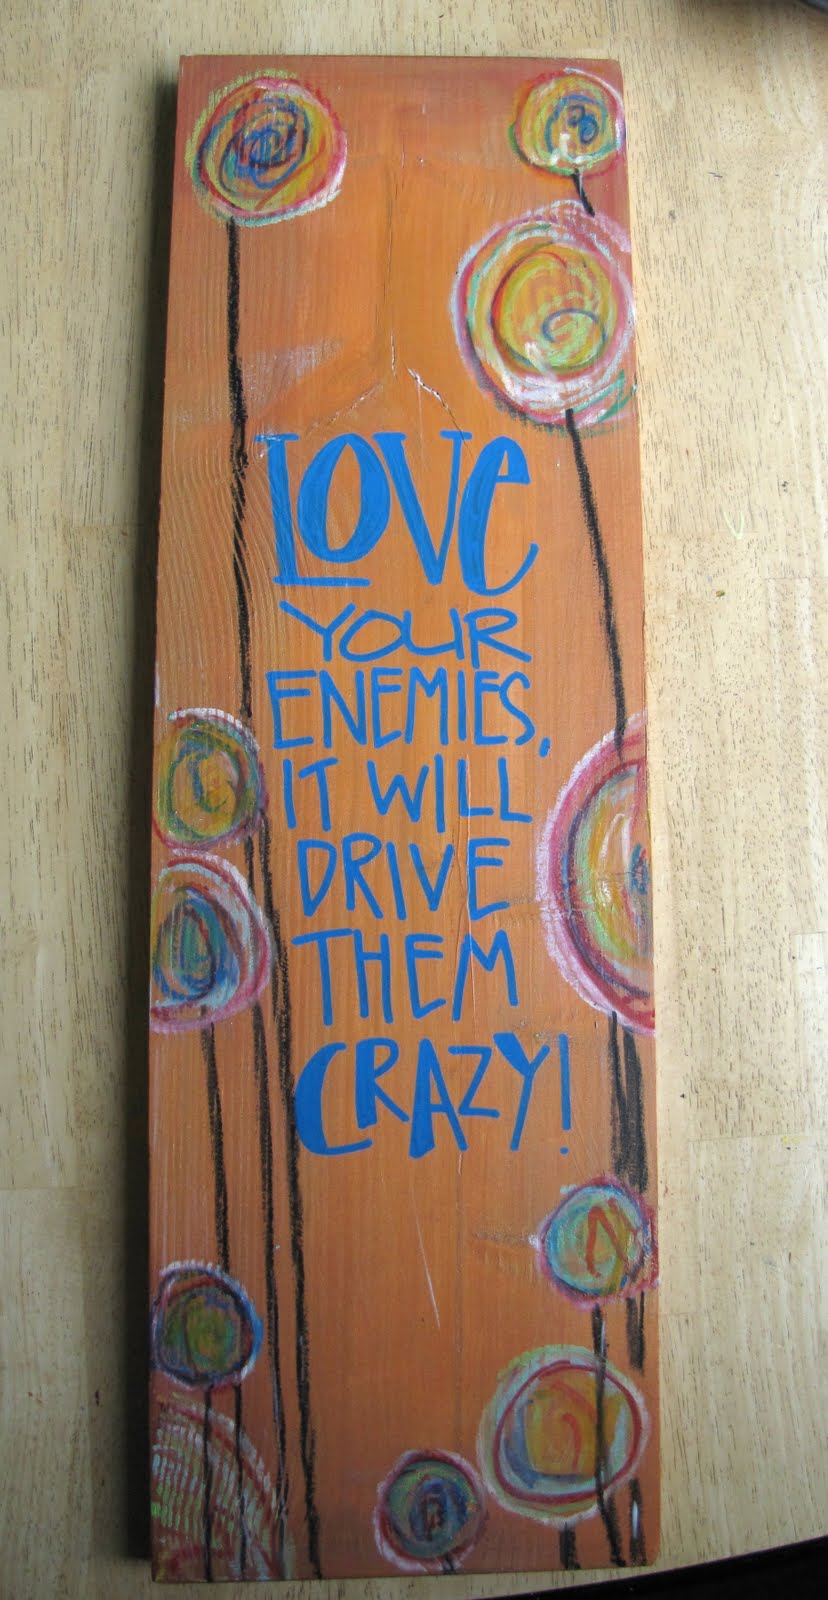 LOVe
YOUR
ENEMIES,
IT WILL
DRIVE
THEM
CRAZY!